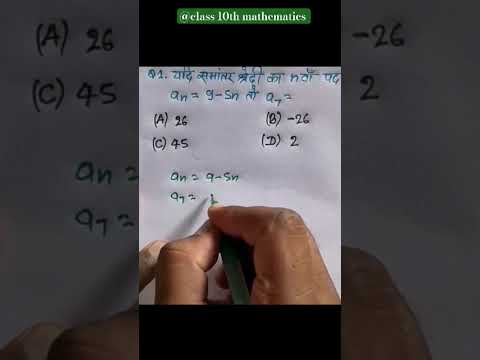 @class 10th mathematics
Q1. यदि समांतर श्रेढ़ी का nवाँ पद
an = 9-5n तो a7 =
(A) 26
(B) -26
(C) 45
(D) 2
an = 9-5n
a7 =